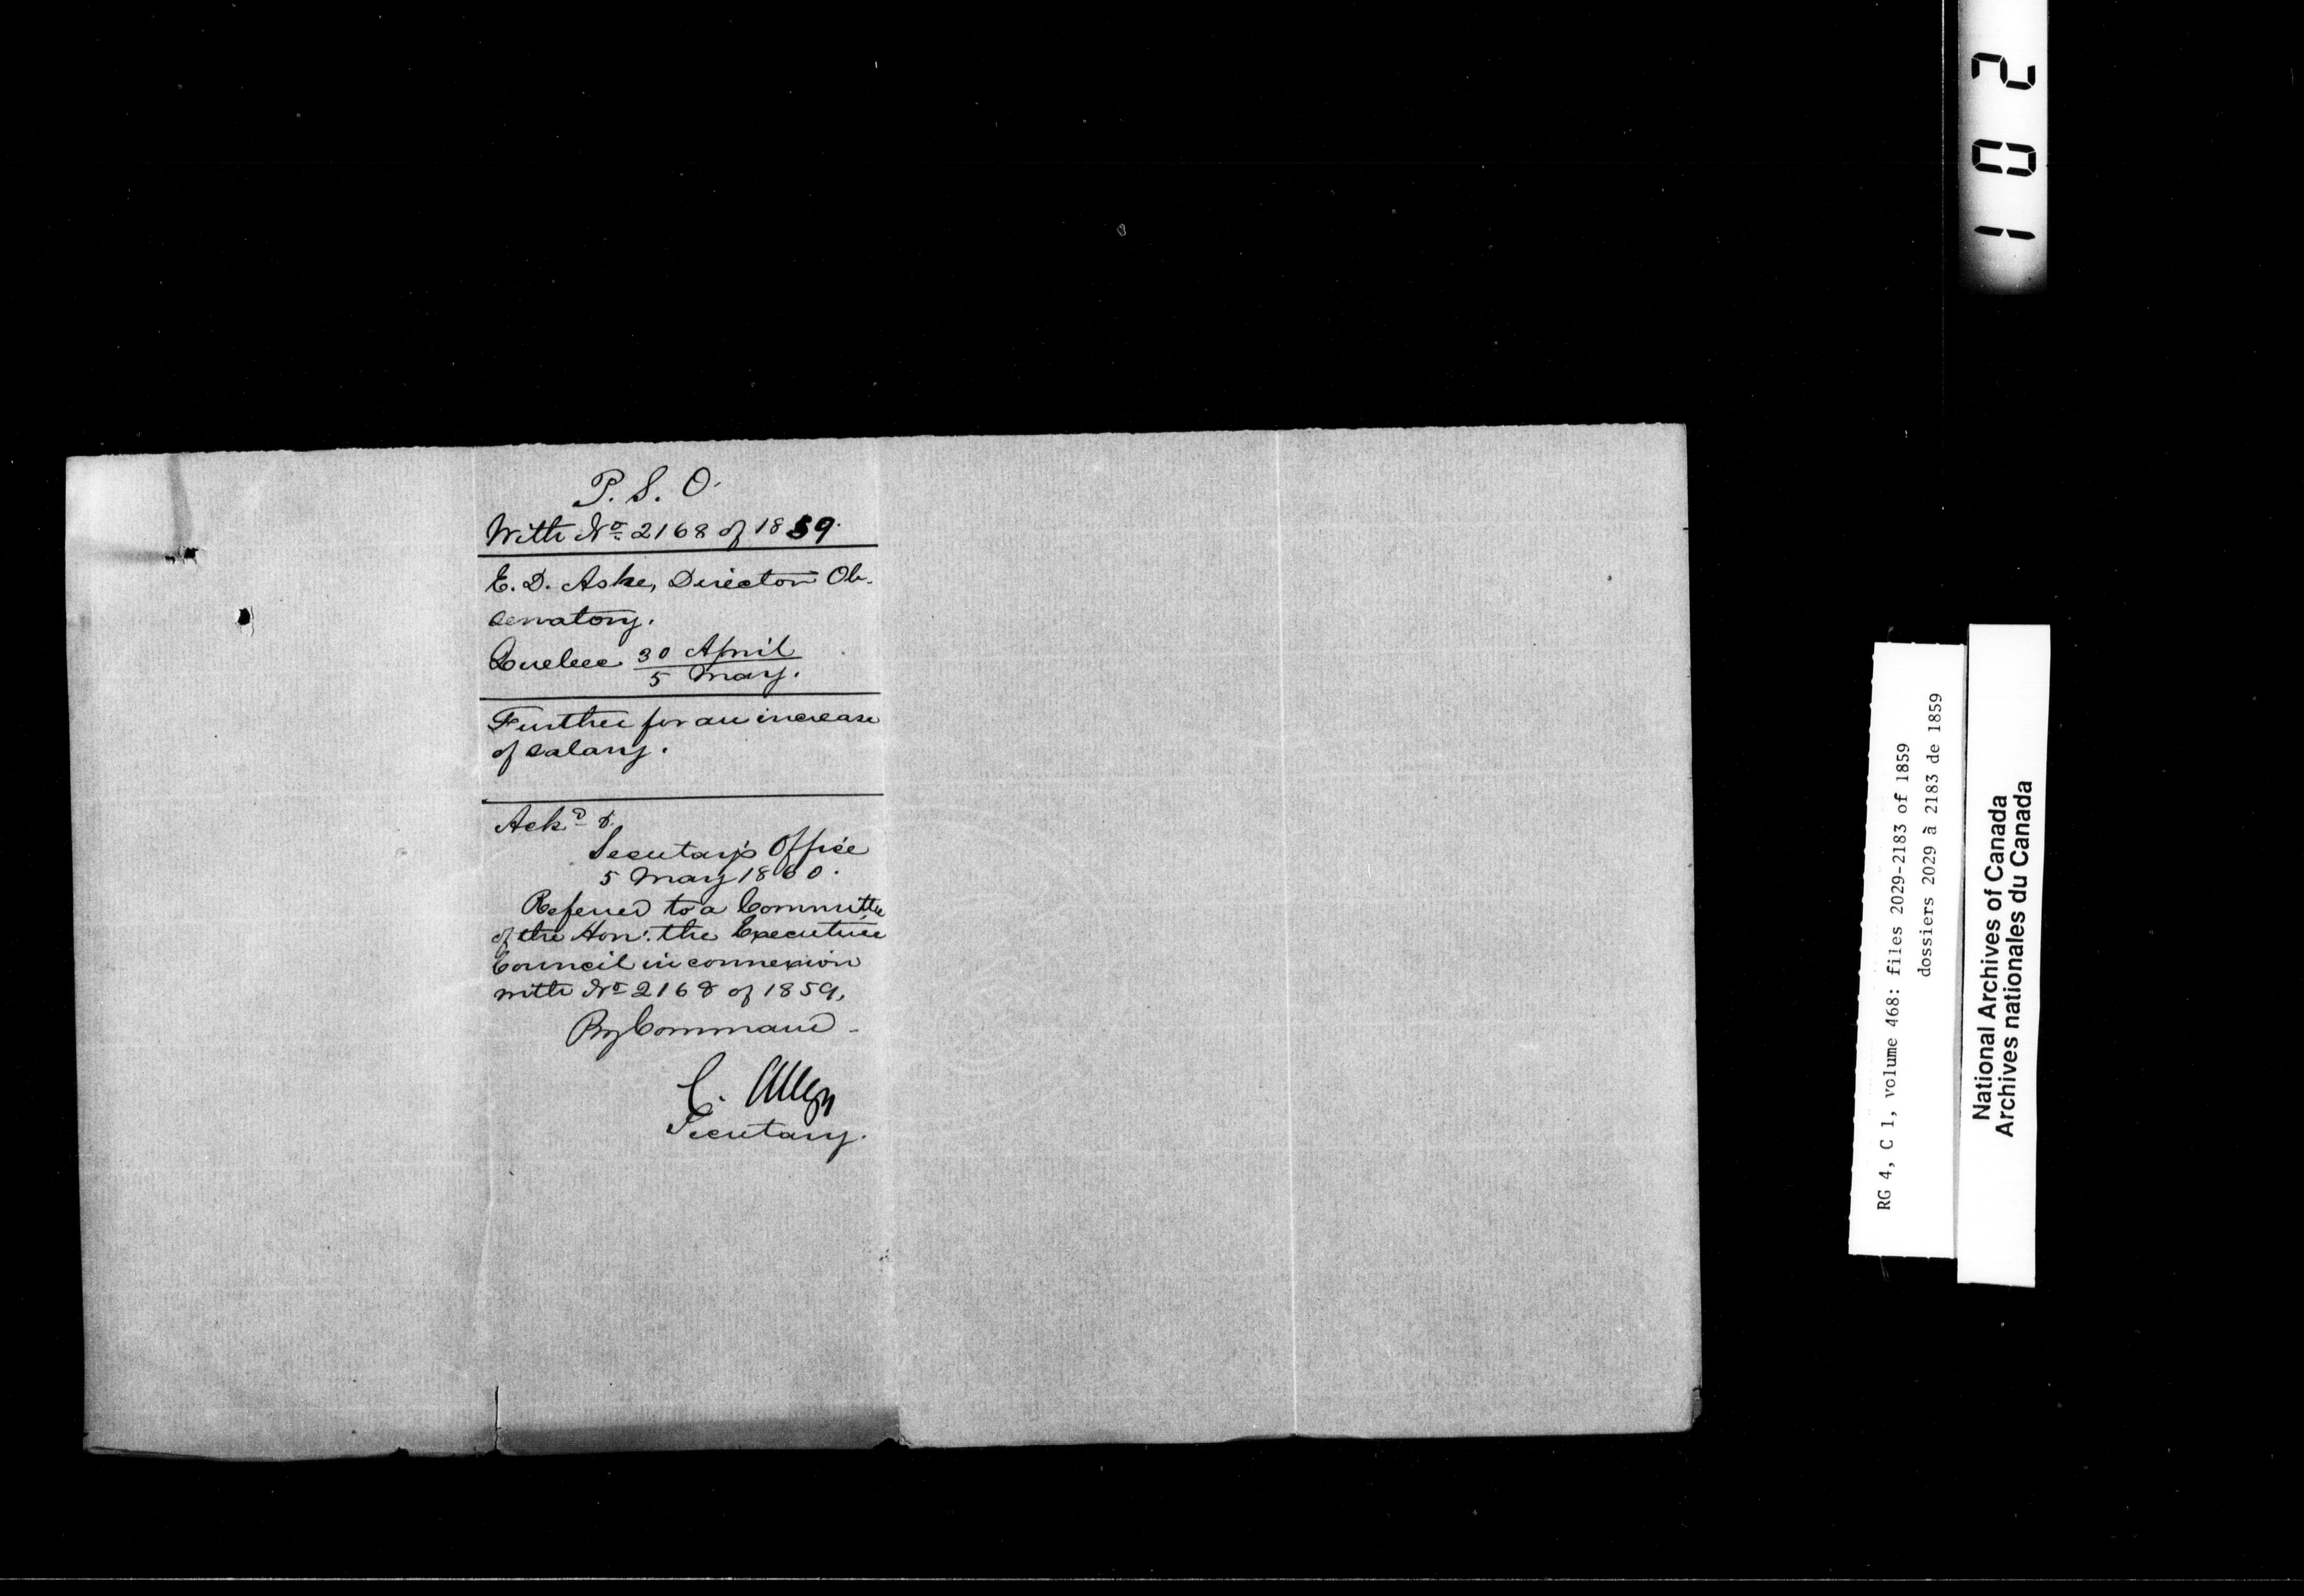 P. S. O.
With No 2168 of 1859.
E. D. Ashe, Director Ob-
servatory.
Quebec 30 April
5 May.
Further for an increase
of salary.
Ackd
Secretary's Office
5 May 1860.
Referred to a Committee
of the Hon: the Executive
Council in connexion
with No 2168 of 1859,
By Command
C. Alleyn
Secretary.
102
RG 4, C 1, volume 468: files 2029-2183 of 1859
dossiers 2029 à 2183 de 1859
National Archives of Canada
Archives nationales du Canada